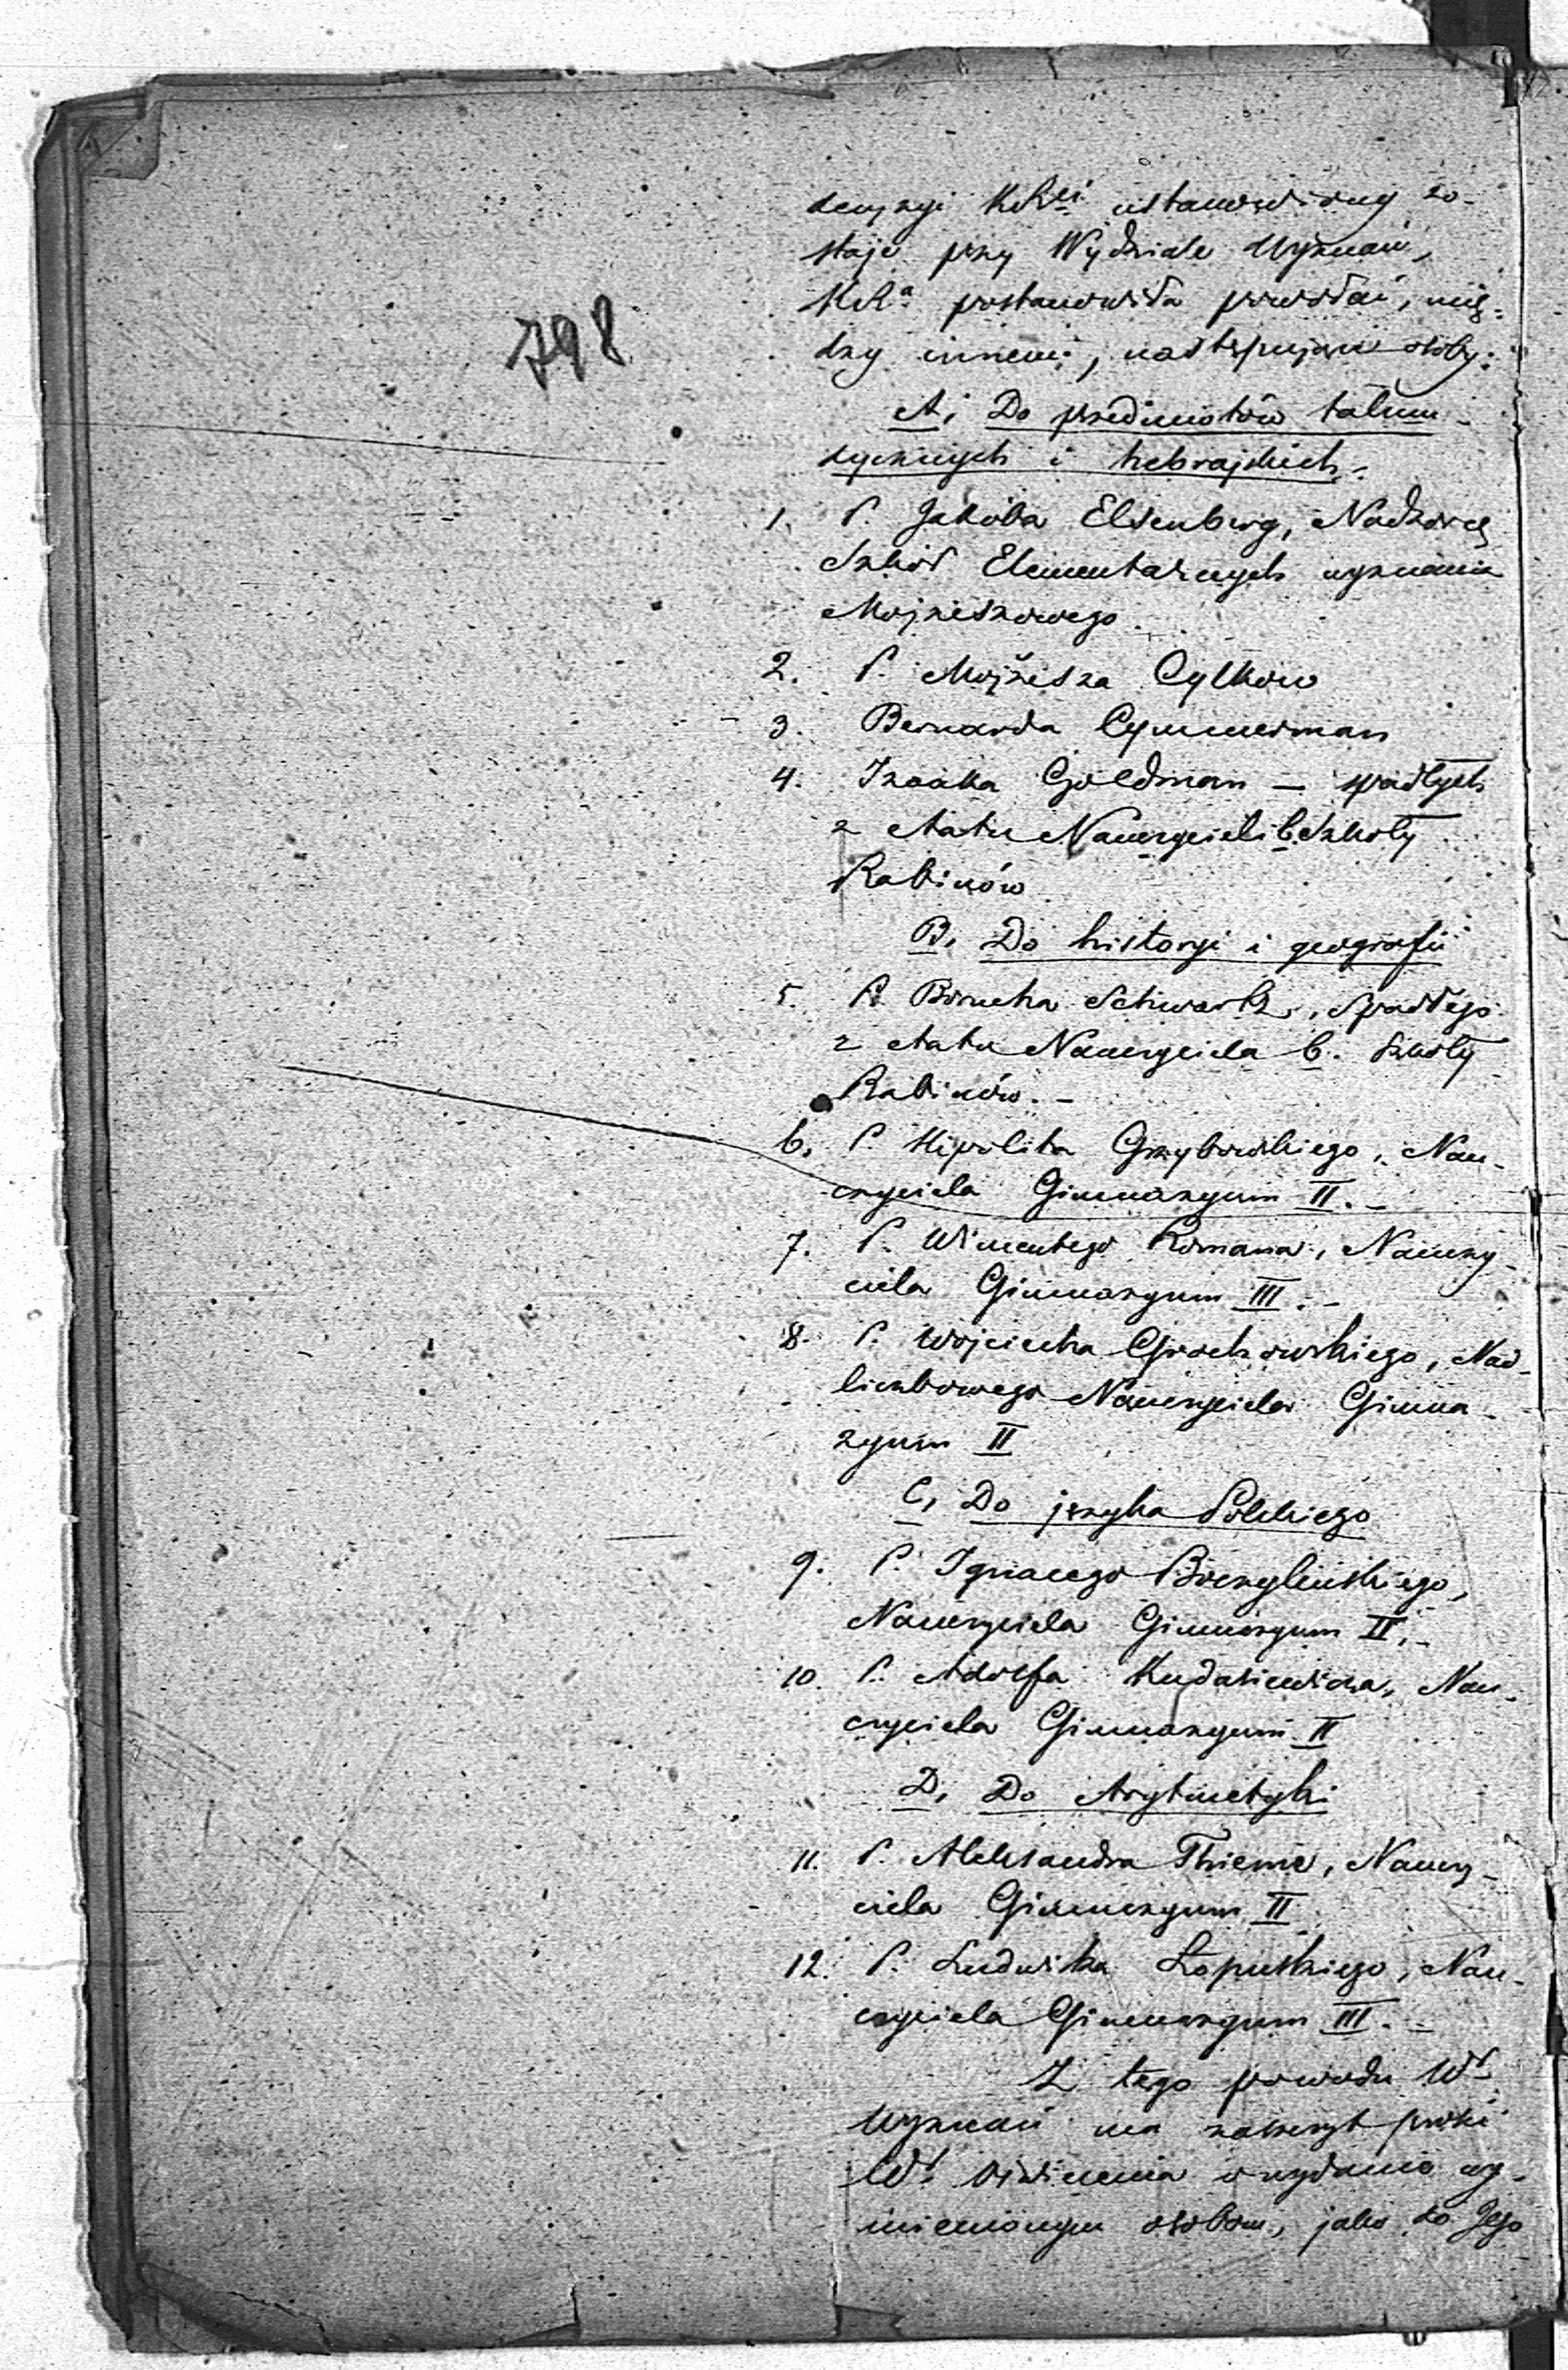 798
decyzyi KRei ustanowiony zo-
staje przy Wydziale Wyznań,
KRa postanowiła powołać, mię-
dzy innemi, następujące osoby:
A, Do przedmiotów talmu-
dycznych i hebrajskich.
1. P. Jakóba Elsenberg, Nadzorcę
Szkół Elementarnych wyznania
Mojżeszowego.
2. P. Mojżesza Cylkow
3. Bernarda Cymmerman
4. Izaaka Goldman — spadłych
z etatu Nauczycieli b. Szkoły
Rabinów
B, Do historyi i geografii
5. P. Borucha Schwartz, spadłego
z etatu Nauczyciela b. Szkoły
Rabinów. -
6. P. Hipolita Grzybowskiego, Nau-
czyciela Gimnazyum II. -
7. P. Wincentego Romana, Nauczy-
ciela Gimnazyum III. -
8. P. Wojciecha Grochowskiego, Nad-
liczbowego Nauczyciela Gimna-
zyum II
C, Do języka Polskiego
9. P. Ignacego Boczylińskiego,
Nauczyciela Gimnazyum II. -
10. P. Adolfa Kudasiewicza, Nau-
czyciela Gimnazyum II
D, Do Arytmetyki
11. P. Aleksandra Thieme, Nauczy-
ciela Gimnazyum II
12. P. Ludwika Łopuskiego, Nau-
czyciela Gimnazyum III. -
Z tego powodu Wł
Wyznań ma zaszczyt prosić
Wł Oświecenia o wydanie wy-
mienionym osobom, jako do Jego